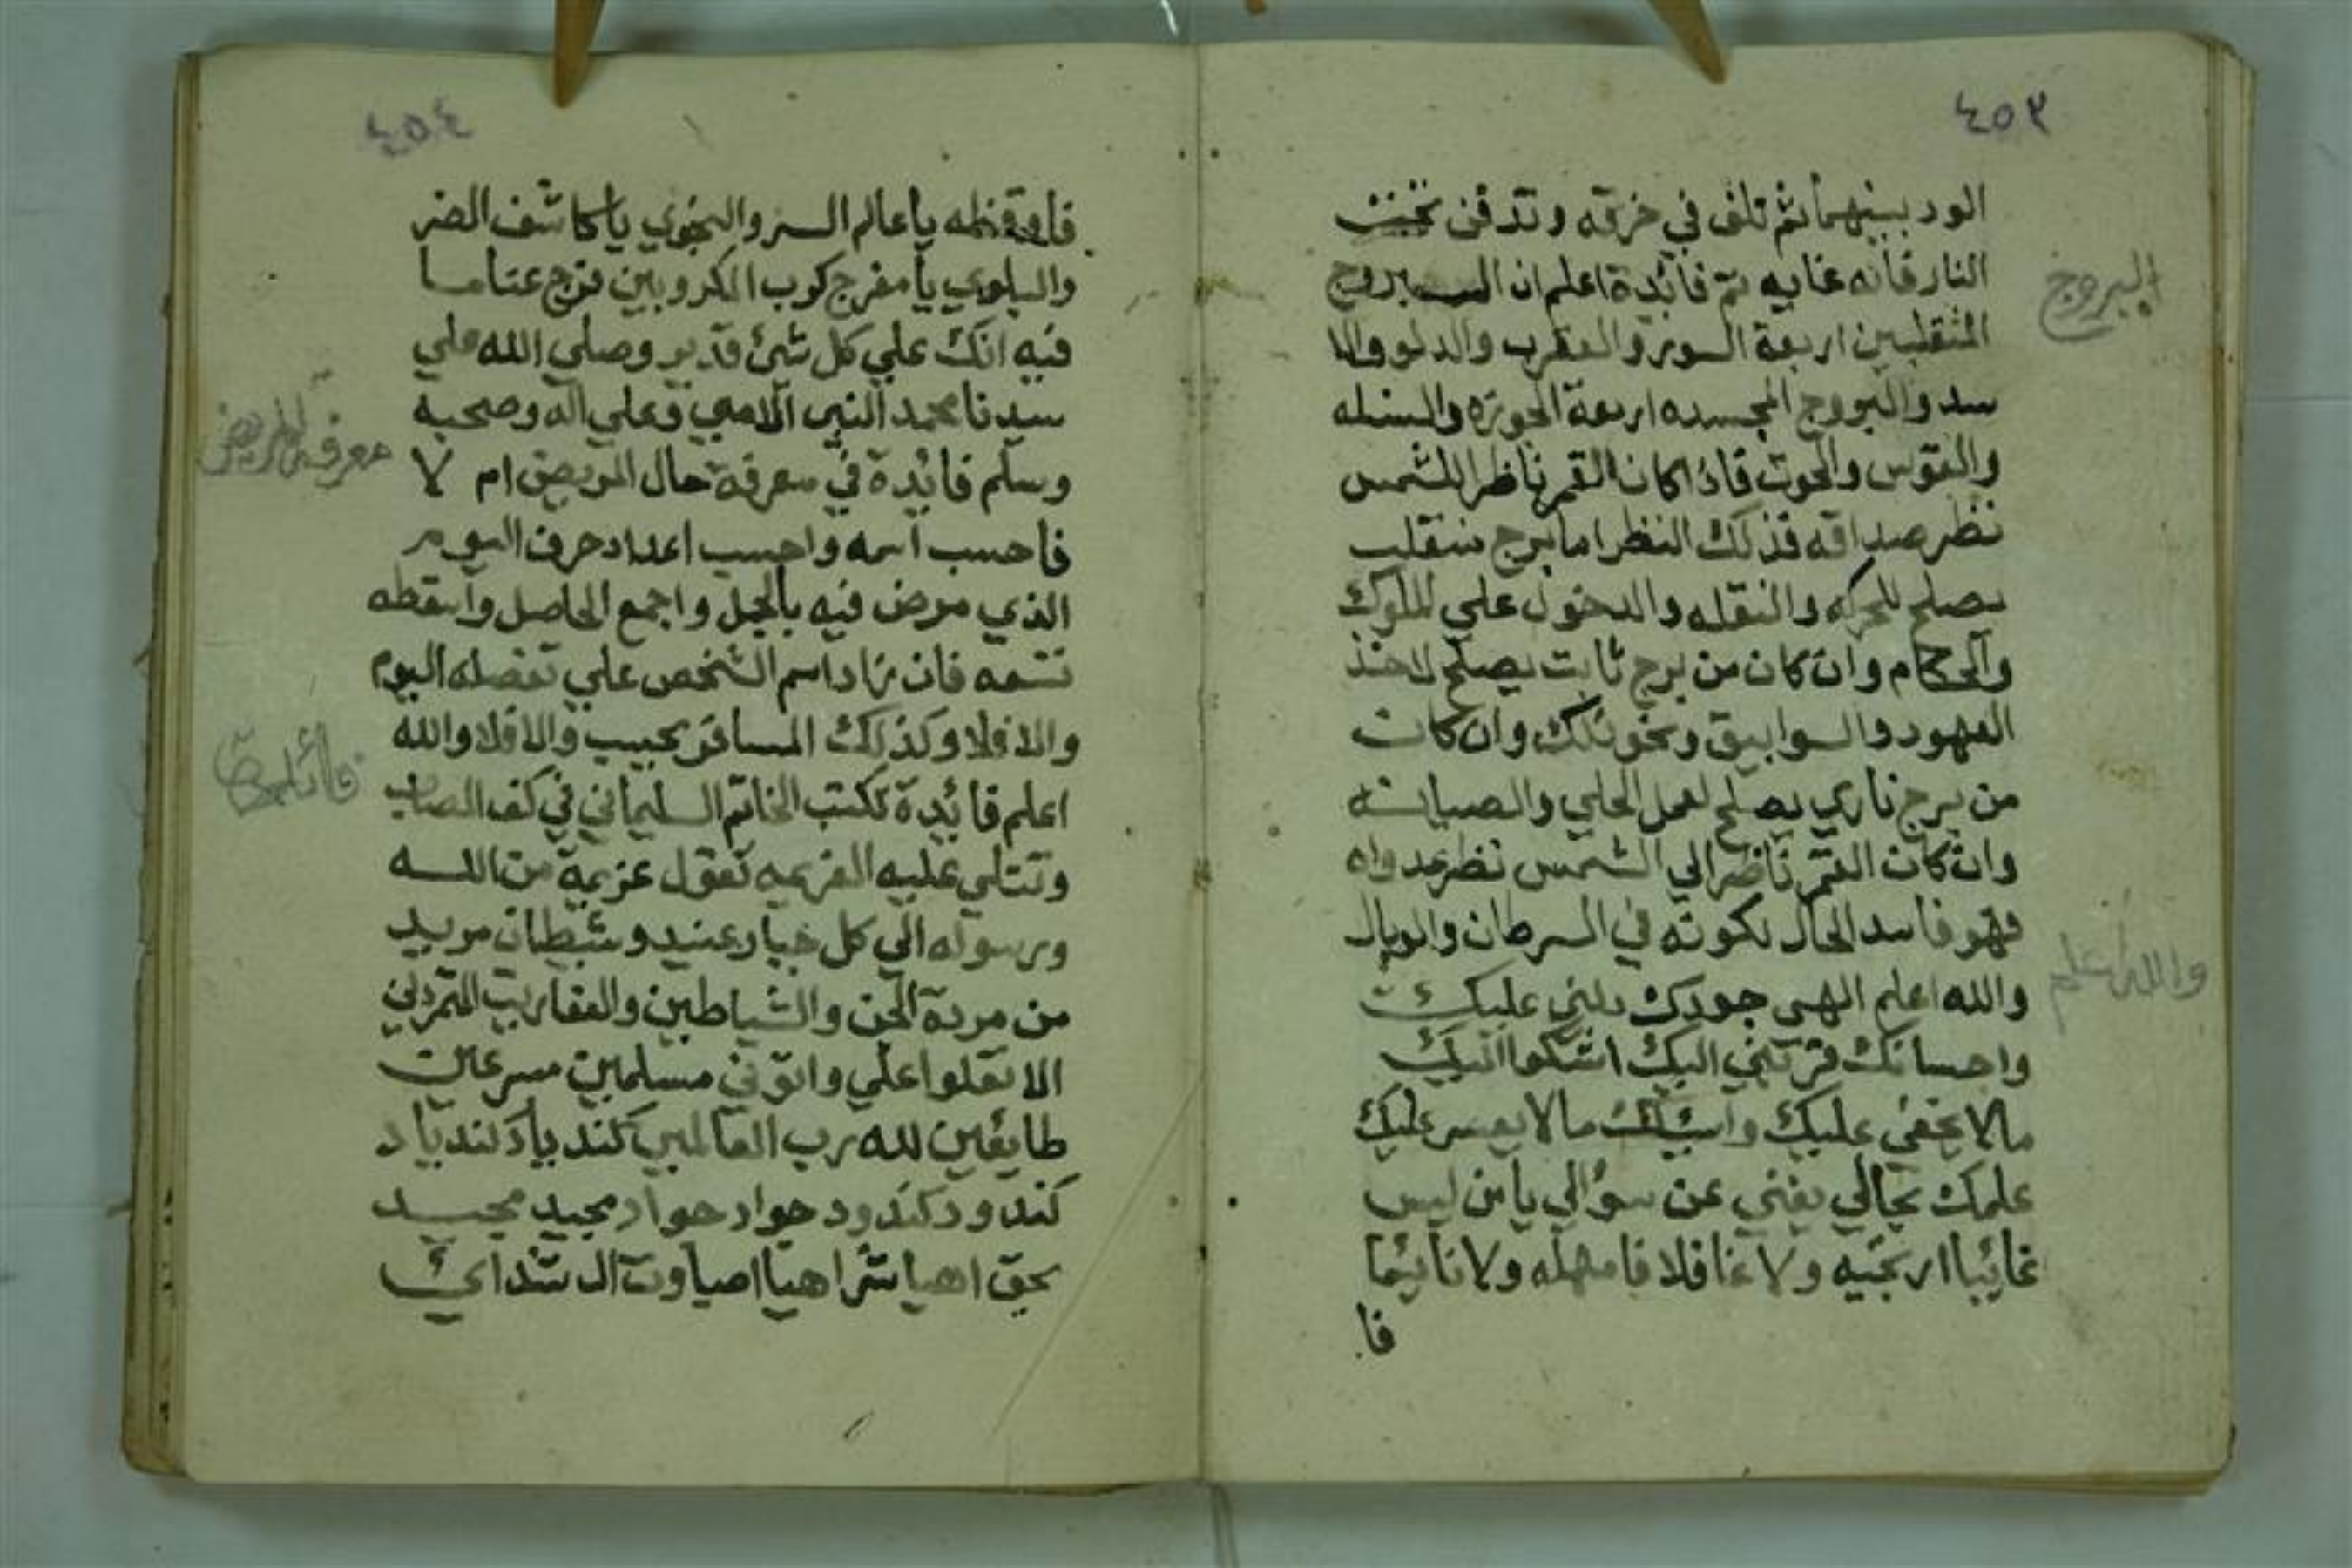 ٤٥٣
الود بينهما ثم تلف في خرقه وتدفن تحت
النار فانه غايه تم فائدة اعلم ان البروج
المنقلبين اربعة السور والعقرب والدلو والا
سد والبروج المجسده اربعة الجوزه والسنبله
والقوس والحوت فاذا كان القمر ناظرا للشمس
نظر صداقه فذلك النظر اما برج منقلب
يصلح للحركه والنقله والدخول علي الملوك
والحكام وان كان من برج ثابت يصلح لاخذ
العهود والسوابيق ونحو ذلك وان كان
من برج ناري يصلح لعمل الحلي والصيانه
وان كان القمر ناظرا الي الشمس نظر عداوه
فهو فاسد الحال لكونه في السرطان والوبال
والله اعلم الهى جودك دلني عليك
واحسانك قربني اليك اشكوا اليك
مالا يخفي عليك واسئلك مالا يعسر عليك
علمك بحالي يغني عن سؤالي يا من ليس
غائبا ارتجيه ولا غافلا فامهله ولا نائيما
فا
البروج
والله اعلم
٤٥٤
فاوقظه يا عالم السر والنجوي يا كاشف الضر
والبلوي يا مفرج كرب المكروبين فرج عنا ما
فيه انك علي كل شئ قدير وصلي الله علي
سيدنا محمد النبي الامي وعلي اله وصحبه
وسلم فائدة في معرفة حال المريض ام لا
فاحسب اسمه واحسب اعداد حرف اليوم
الذي مرض فيه بالجمل واجمع الحاصل واسقطه
تسعه فان زاد اسم الشخص علي تفضله اليوم
والا فلا وكذلك المسافر يجيب والا فلا والله
اعلم فائدة تكتب الخاتم السليماني في كف المصاب
وتتلي عليه العزيمه تقول عزيمة من الله
ورسوله الي كل جبار عنيد وشيطان مريد
من مردة الجن والشياطين والعفاريت المتمردين
الا تعلوا علي واتوني مسلمين مسرعين
طايعين لله رب العالمين كندياد كندياد
كندود كندود جواد جواد مجيد مجيد
بحق اهيا شراهيا اصباوت ال شداي
معرفة المريض